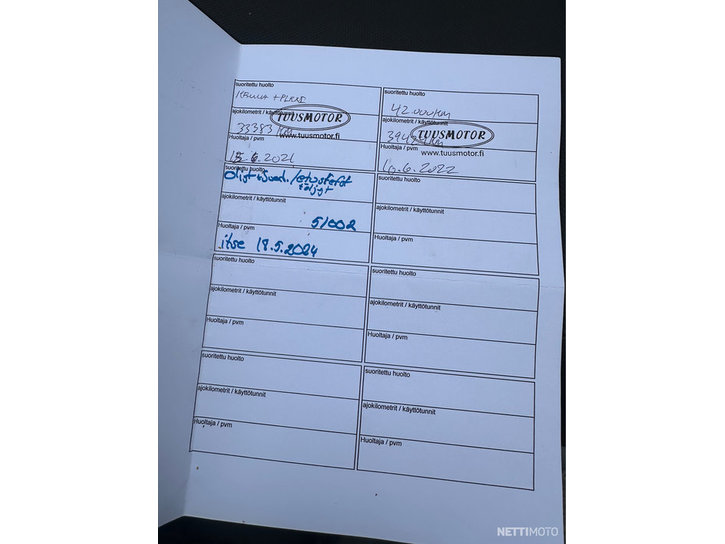 suoritettu huolto
ajokilometrit / käyttö
33383 KM
TUUSMOTOR
www.tuusmotor.fi
Huoltaja / pvm
suoritettu huolto
42.000KM
ajokilometrit / käyttö
TUUSMOTOR
www.tuusmotor.fi
Huoltaja / pvm
10.6.2022
suoritettu huolto
ajokilometrit / käyttötunnit
51002
Huoltaja / pvm
itse 18.5.2024
suoritettu huolto
ajokilometrit / käyttötunnit
Huoltaja / pvm
suoritettu huolto
ajokilometrit / käyttötunnit
Huoltaja / pvm
suoritettu huolto
ajokilometrit / käyttötunnit
Huoltaja / pvm
suoritettu huolto
ajokilometrit / käyttötunnit
Huoltaja / pvm
suoritettu huolto
ajokilometrit / käyttötunnit
Huoltaja / pvm
NETTIMOTO